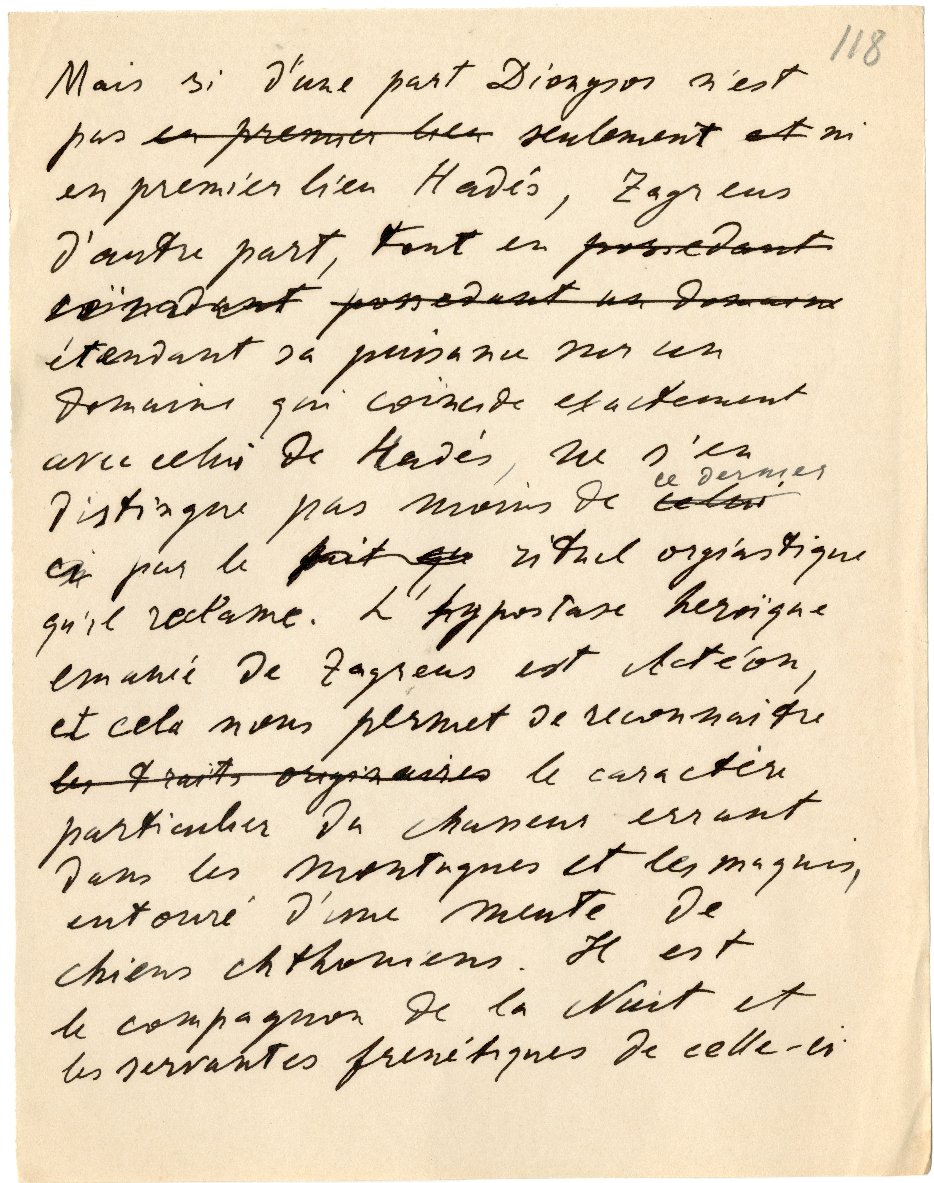 118
Mais si d'une part Dionysos n'est
pas en premier lieu seulement et ni
en premier lieu Hadés, Zagreus
d'autre part, tout en possedant
coïncidant possedant un domaine
étendant sa puissance sur un
domaine qui coïncide exactement
avec celui de Hadés, ne s'en
ce dernier
distingue pas moins de celui
ci par le fait que rituel orgiastique
qu'il reclame. L'hypostase heroïque
emanée de Zagreus est Actéon,
et cela nous permet de reconnaitre
les traits originaires le caractére
particulier du chasseur errant
dans les montagnes et les maquis,
entouré d'une meute de
chiens chthoniens. Il est
le compagnon de la Nuit et
les servantes frenétiques de celle-ci